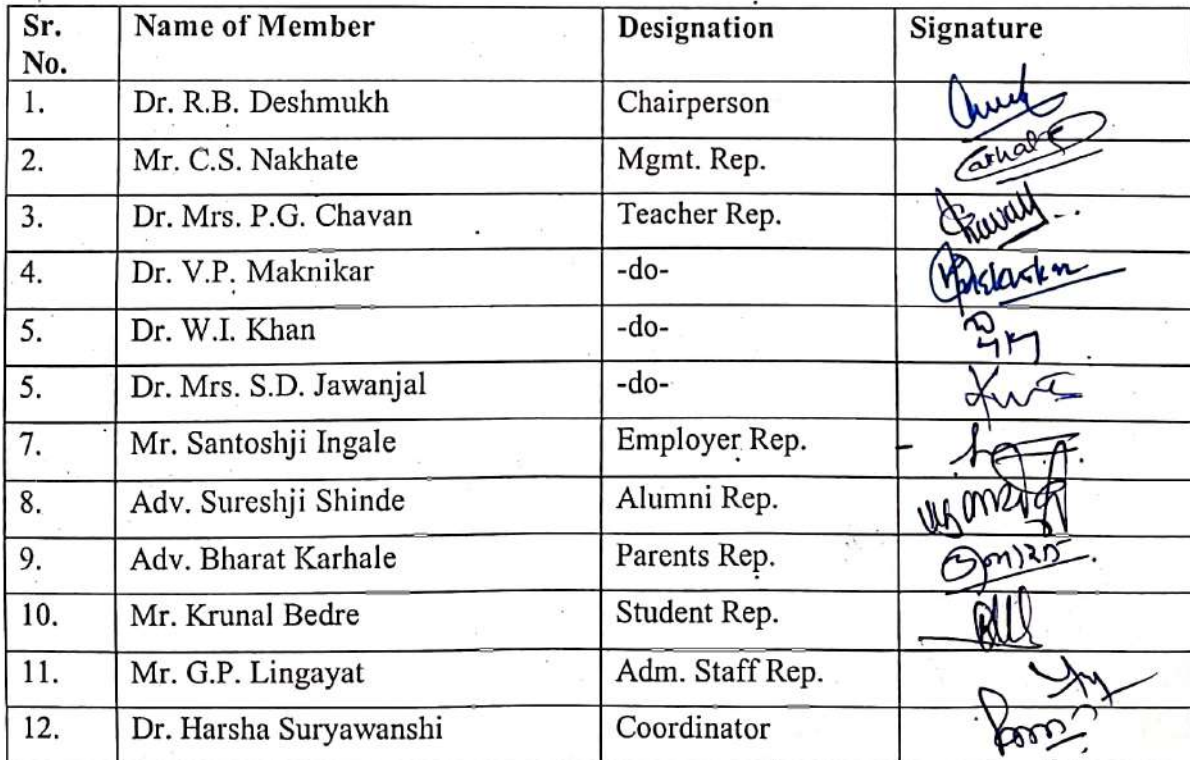 Sr. No. Name of Member Designation Signature
1. Dr. R.B. Deshmukh Chairperson
2. Mr. C.S. Nakhate Mgmt. Rep.
3. Dr. Mrs. P.G. Chavan Teacher Rep.
4. Dr. V.P. Maknikar -do-
5. Dr. W.I. Khan -do-
5. Dr. Mrs. S.D. Jawanjal -do-
7. Mr. Santoshji Ingale Employer Rep.
8. Adv. Sureshji Shinde Alumni Rep.
9. Adv. Bharat Karhale Parents Rep.
10. Mr. Krunal Bedre Student Rep.
11. Mr. G.P. Lingayat Adm. Staff Rep.
12. Dr. Harsha Suryawanshi Coordinator